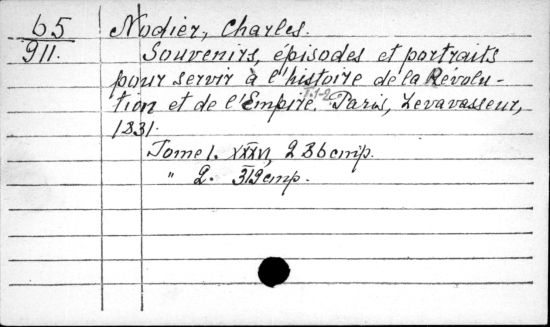 65
911.
Nodier, Charles.
Souvenirs, épisodes et portraits
pour servir à l'histoire de la Révolu-
tion et de l'Empire. T.1-2. Paris, Levavasseur,
1831.
Tome 1. XXXVI, 286 стр.
" 2. 319 стр.